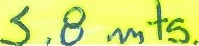 5.8 mts.